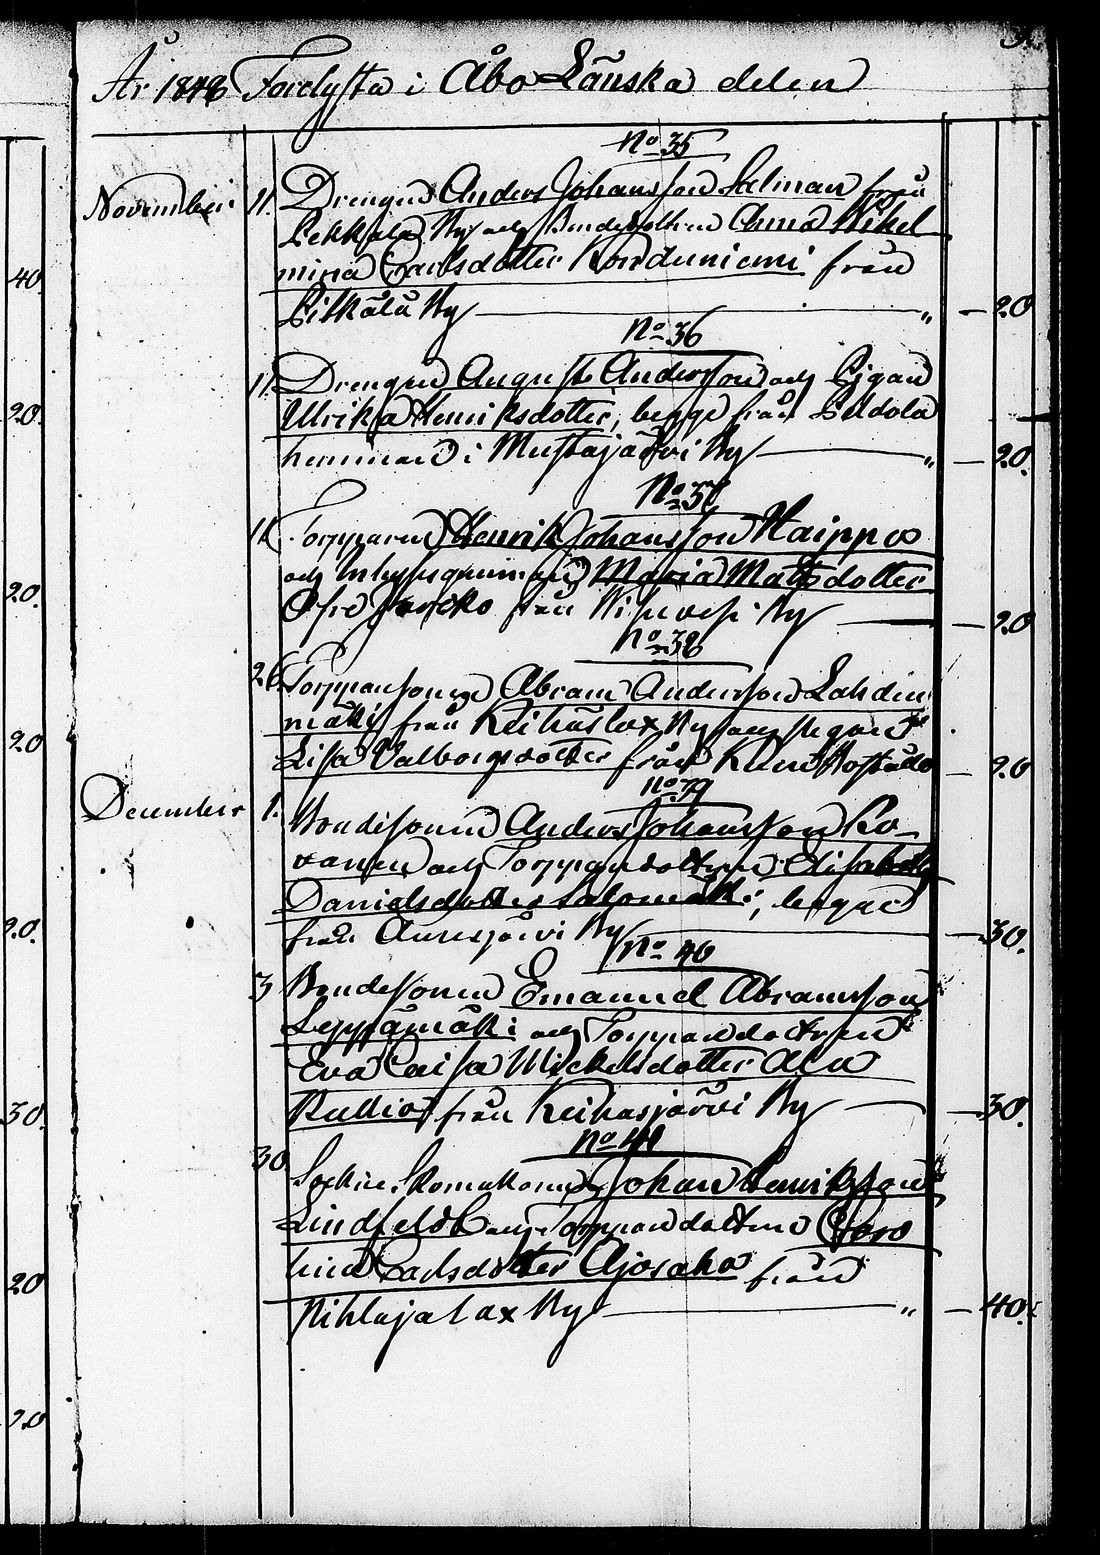 År 1848 Förlysta i Åbo Länska delen
No 35
November 11. Drengen Anders Johansson Salman från
Pekkala By och Bondedottren Anna Wihel
mina Carlsdotter Konduniemi från
Pitkälä By " — 20
No 36
11. Drengen August Andersson och Pigan
Ulrika Henriksdotter, begge från Eldola
hemman i Mustajärvi By " — 20.
No 37
11. Torpparen Henrik Johansson Haippos
och Inhysesqvinnan Maria Matsdotter
från By — 20
No 38
26. Torpparsonen Abram Andersson Lahden
mäki från Keihäslax By och Pigan
Lisa Valborgsdotter från — 20
No 39
December 1. Bondesonen Anders Johansson Po-
vanen och Torppardottren Elisabeth
Danielsdotter Salomäki, begge
från Auresjärvi By — 30.
No 40
3 Bondesonen Emanuel Abramsson
Leppämäki och Torppardottren
Eva Caisa Mickelsdotter Ala
Kullio från Keihasjärvi By — 30.
No 41
30 Sockne Skomakaren Johan Henriksson
Lindfeldt och Torppardottren Caro
lina Carlsdotter Ajosaho från
Pihlajalax By " — 40.